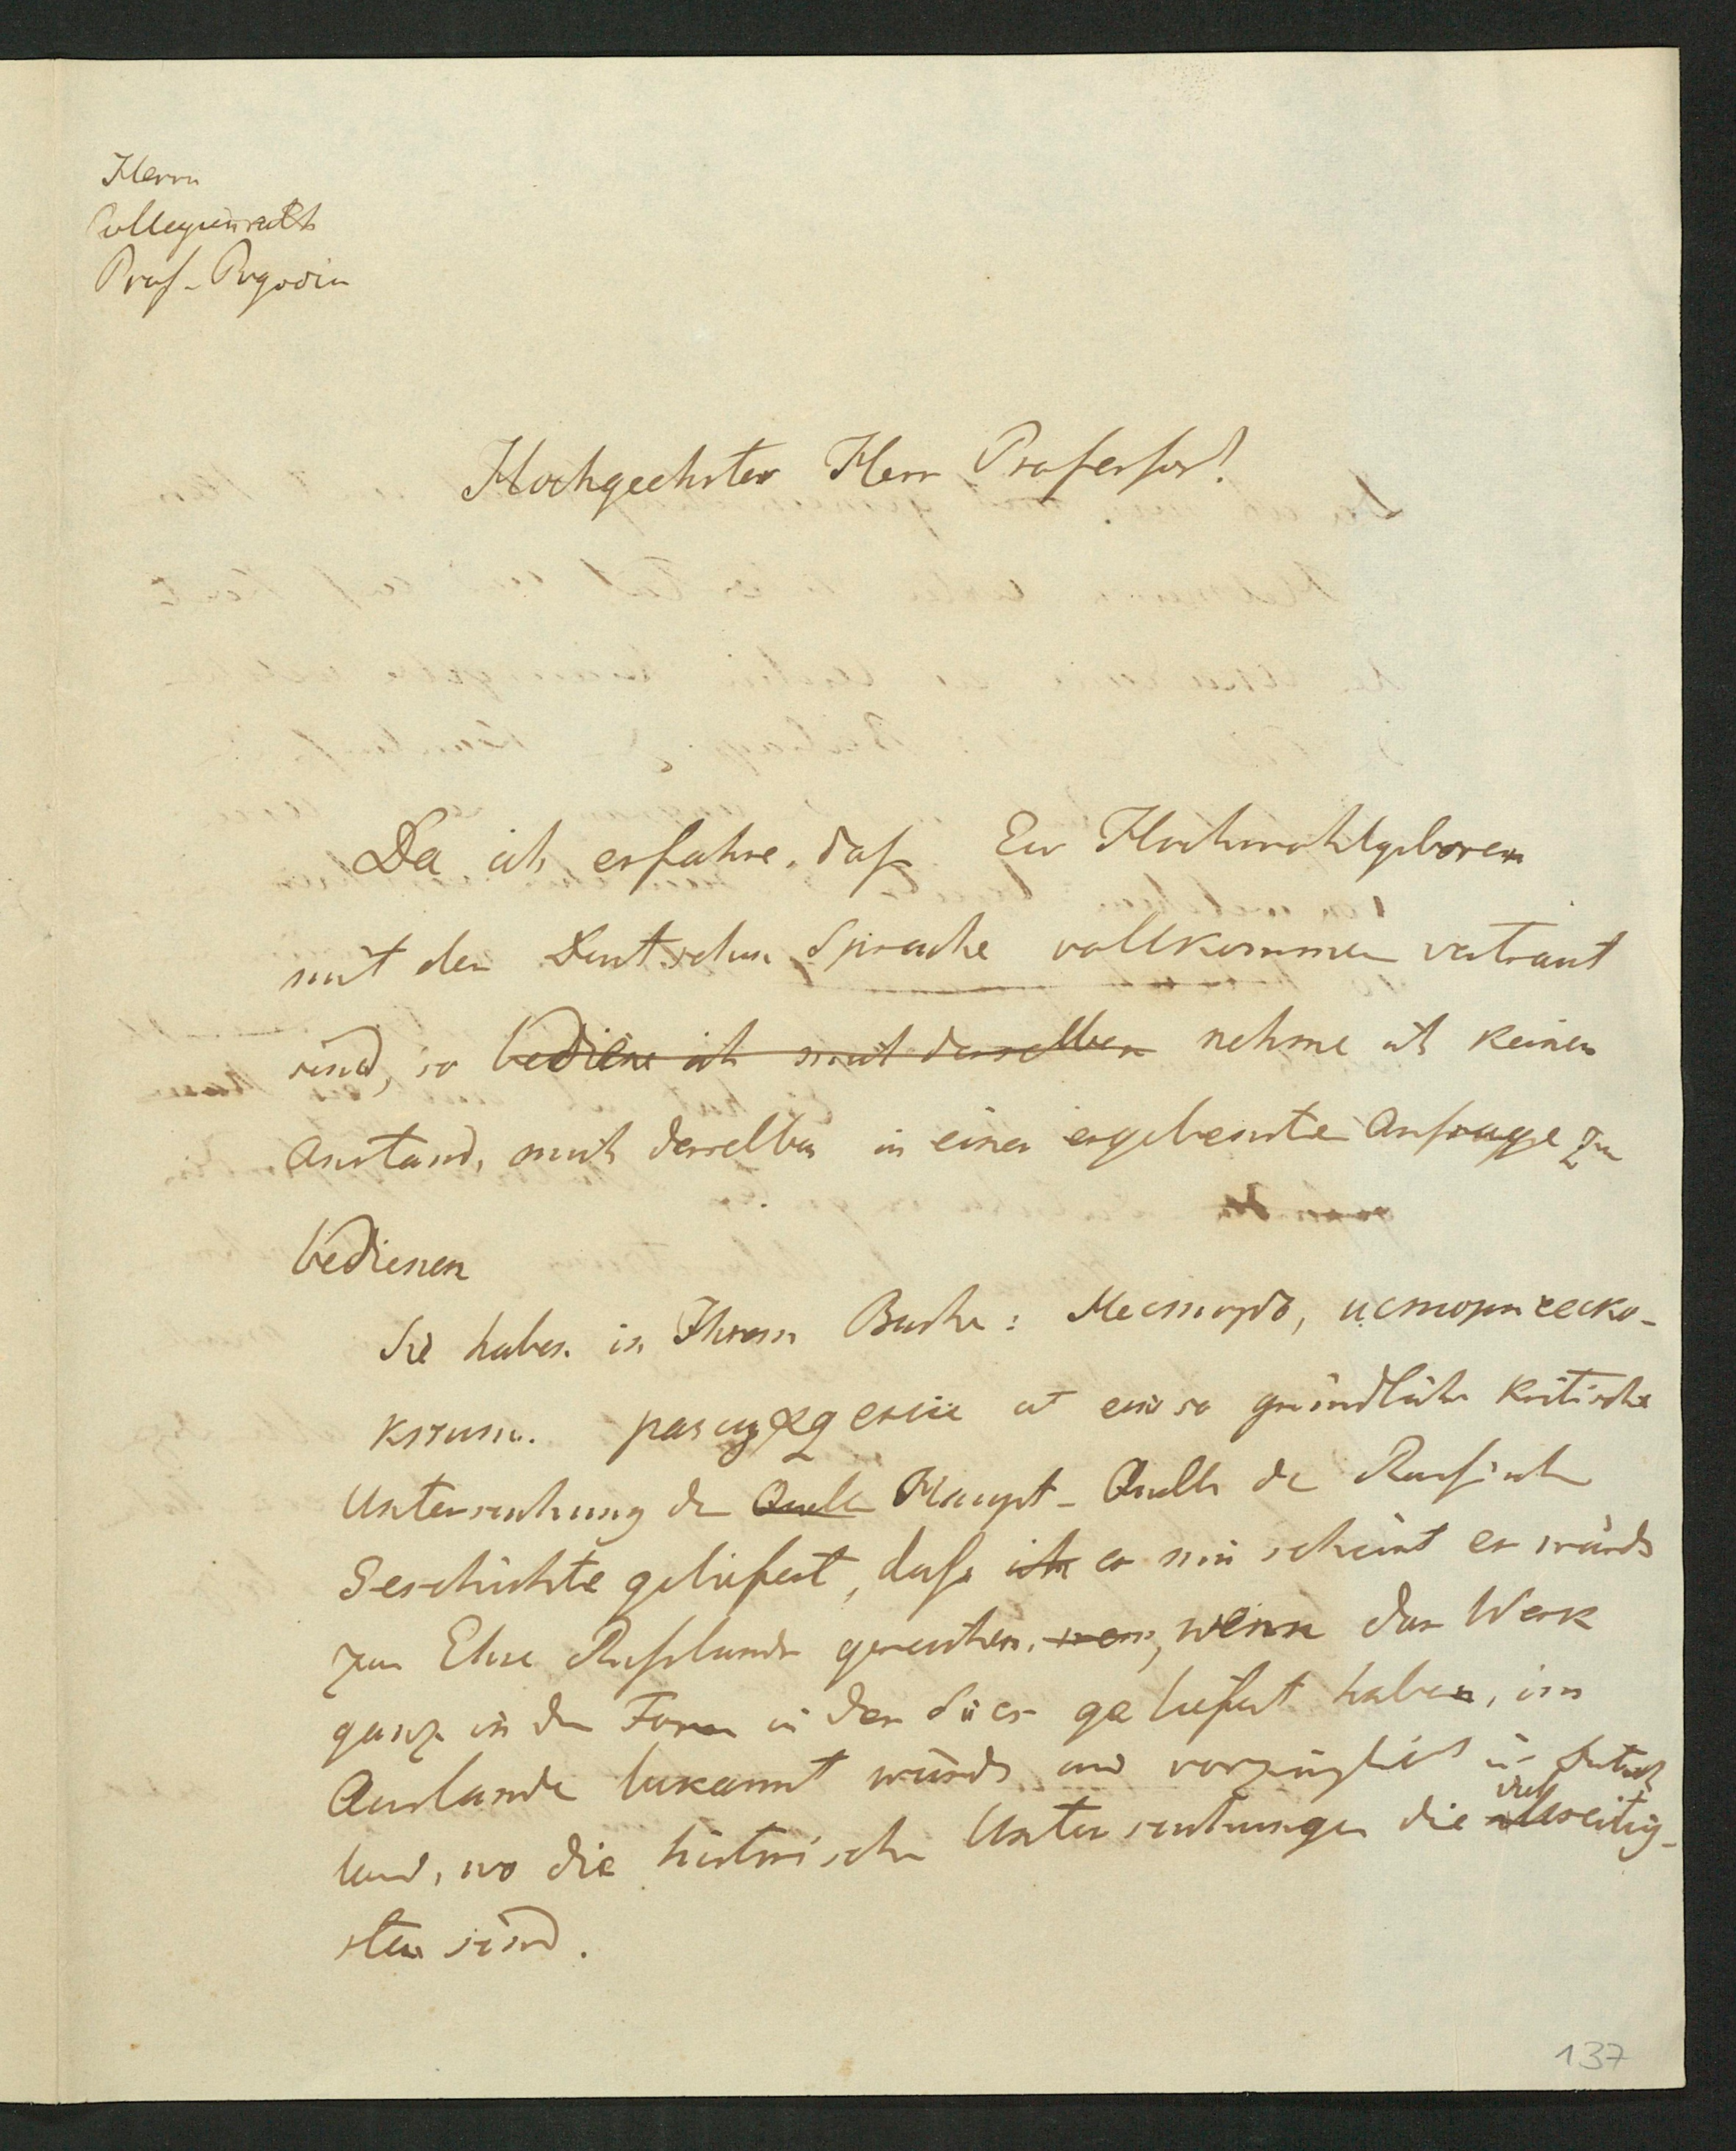 Herrn
Collegienrath
Prof. Pogodin
Hochgeehrter Herr Professor!
Da ich erfahre, daß Ew Hochwohlgeboren
mit der Deutschen Sprache vollkommen vertraut
sind, so bediene ich mich derselben nehme ich keinen
Anstand, mich derselben in einer ergebensten Anfrage zu
bedienen
Sie haben in Ihrem Buche: Несторъ, историческо-
критич. eine so gründliche kritische
Untersuchung der Quelle Haupt-Quelle der Russischen
Geschichte geliefert, daß ich es mir scheint es würde
zur Ehre Rußlands gereichen, wenn, wenn das Werk
ganz in der Form in der Sie es geliefert haben, im
Auslande bekannt würde und vorzüglich in Deutsch
land, wo die historischen Untersuchungen die allseitig-
viel
sten sind.
137